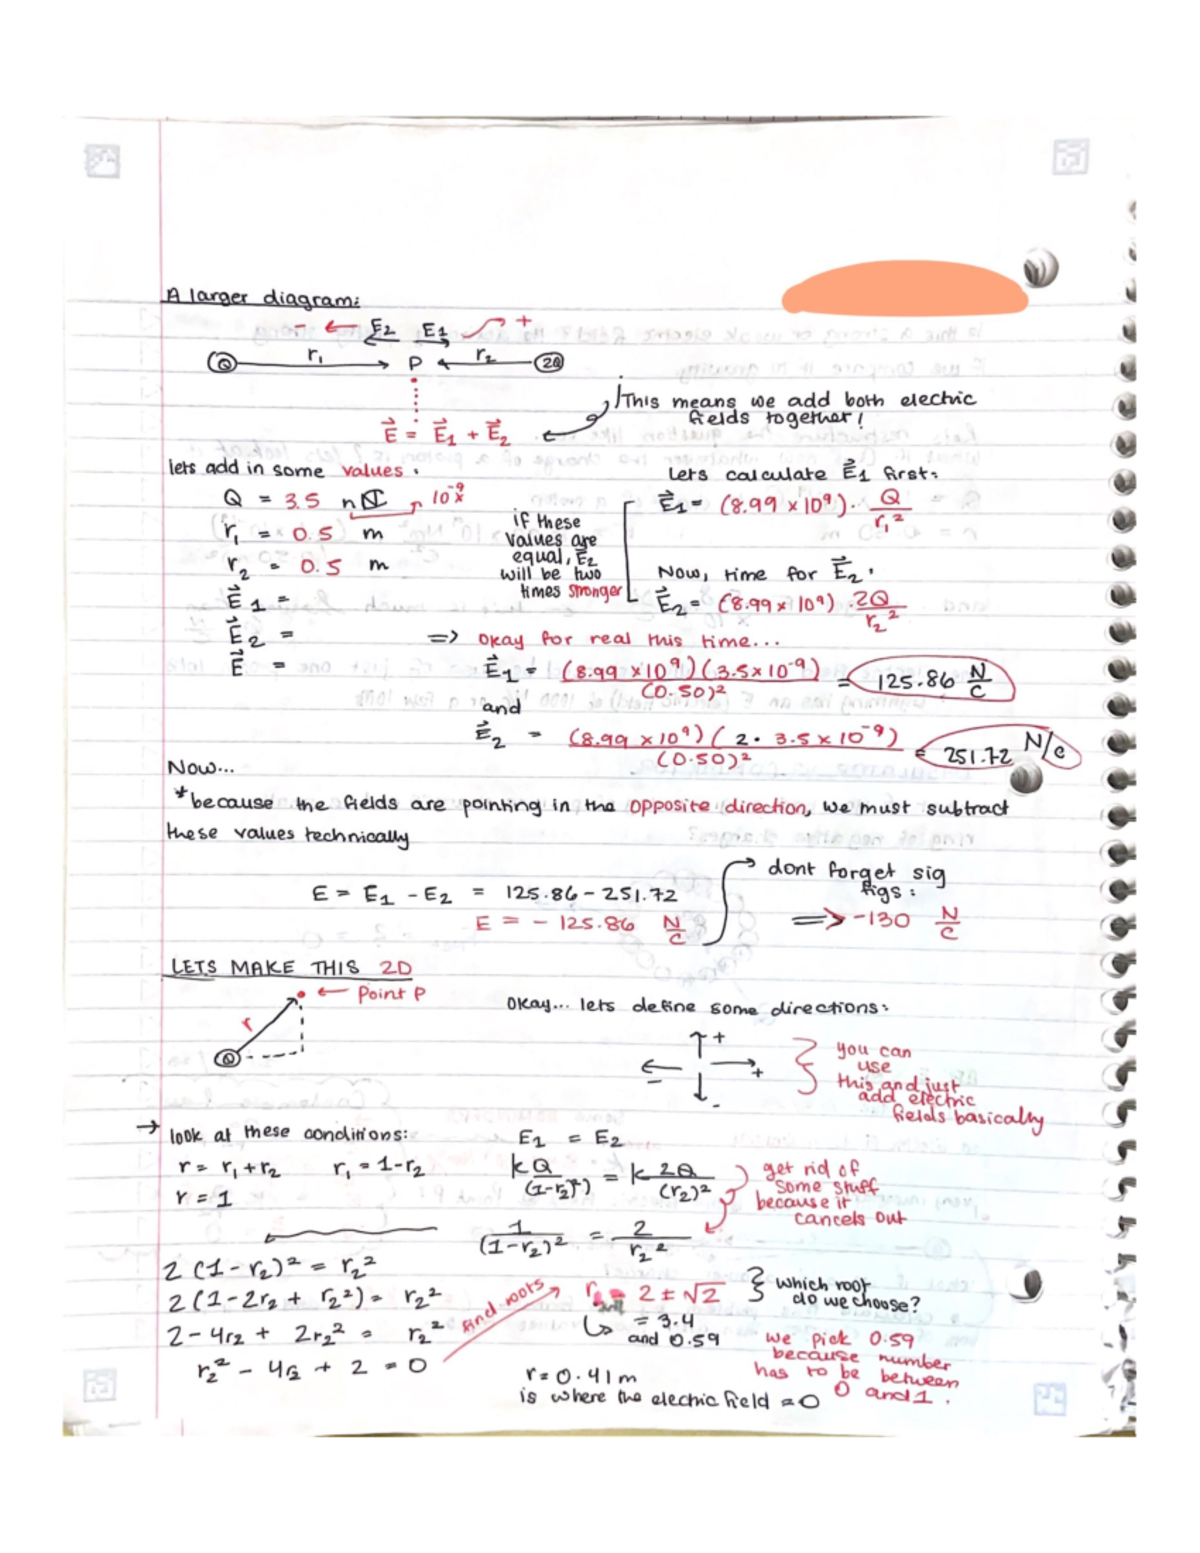 A larger diagram:
- ← E2 E1 +
Q r₁ P r₂ 2Q
This means we add both electric
fields together!
E⃗ = E⃗₁ + E⃗₂
lets add in some values.
Q = 3.5 nC 10⁻⁹
r₁ = 0.5 m
r₂ = 0.5 m
E⃗₁ =
E⃗₂ =
E⃗ =
if these
values are
equal, E₂
will be two
times stronger
Lets calculate E⃗₁ first:
E⃗₁ = (8.99 x 10⁹) · Q/r₁²
Now, time for E⃗₂.
E⃗₂ = (8.99 x 10⁹) · 2Q/r₂²
=> okay for real this time...
E⃗₁ = (8.99 x 10⁹)(3.5x10⁻⁹)/(0.50)² = 125.86 N/C
and
E⃗₂ = (8.99 x 10⁹)(2 · 3.5 x 10⁻⁹)/(0.50)² = 251.72 N/C
Now...
*because the fields are pointing in the opposite direction, we must subtract
these values technically
E = E₁ - E₂ = 125.86 - 251.72
E = - 125.86 N/C
dont forget sig
figs:
=> -130 N/C
LETS MAKE THIS 2D
← Point P
r
Q
Okay... lets define some directions:
+
- +
-
you can
use
this and just
add electric
fields basically
→ look at these conditions:
r = r₁ + r₂ r₁ = 1 - r₂
r = 1
E₁ = E₂
k Q/(1-r₂)² = k 2Q/(r₂)²
1/(1-r₂)² = 2/r₂²
get rid of
some stuff
because it
cancels out
2(1-r₂)² = r₂²
2(1-2r₂ + r₂²) = r₂²
2 - 4r₂ + 2r₂² = r₂²
r₂² - 4r₂ + 2 = 0
find roots
r = 2 ± √2
= 3.4
and 0.59
which root
do we choose?
we pick 0.59
because number
has to be between
0 and 1.
r = 0.41m
is where the electric field = 0